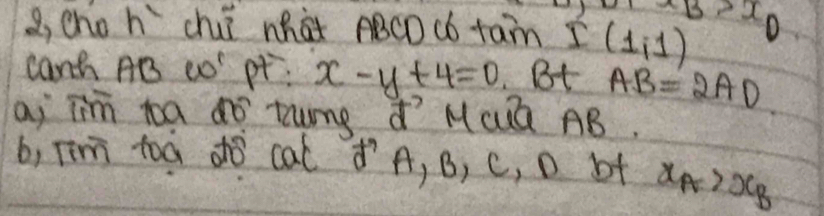 x_B > x_D.
2, Cho h` chữ nhật ABCD có tâm I (1;1)
cạnh AB có pt: x - y + 4 = 0. Bt AB = 2AD
a, Tìm toạ độ trung đ' M của AB.
b, Tìm toạ độ các đ' A, B, C, D bt x_A > x_B